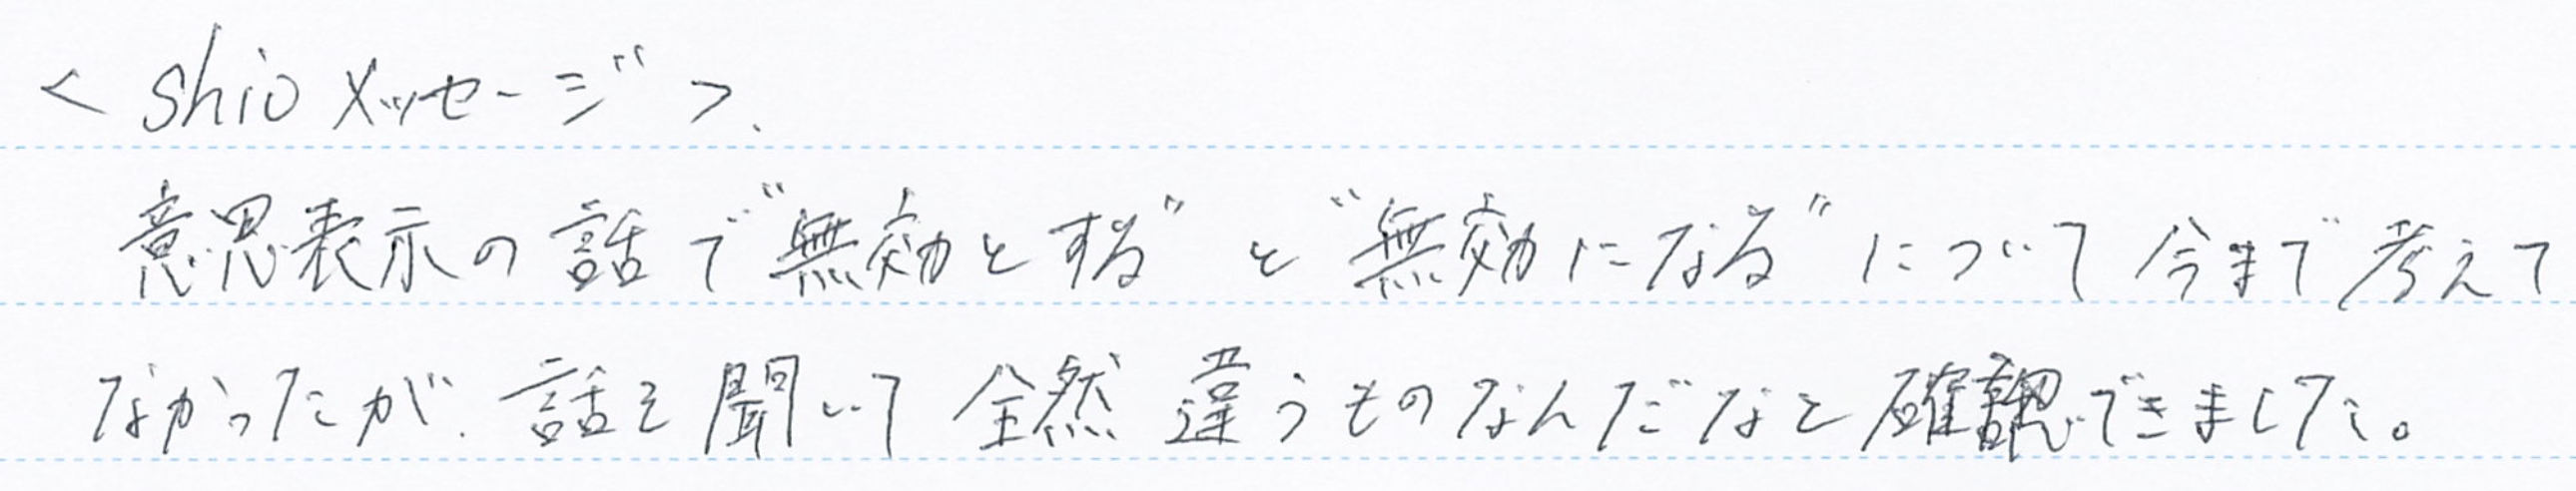 < shio メッセージ >.
意思表示の話で"無効とする"と"無効になる"について今まで考えて
なかったが、話を聞いて全然違うものなんだなと確認できました。